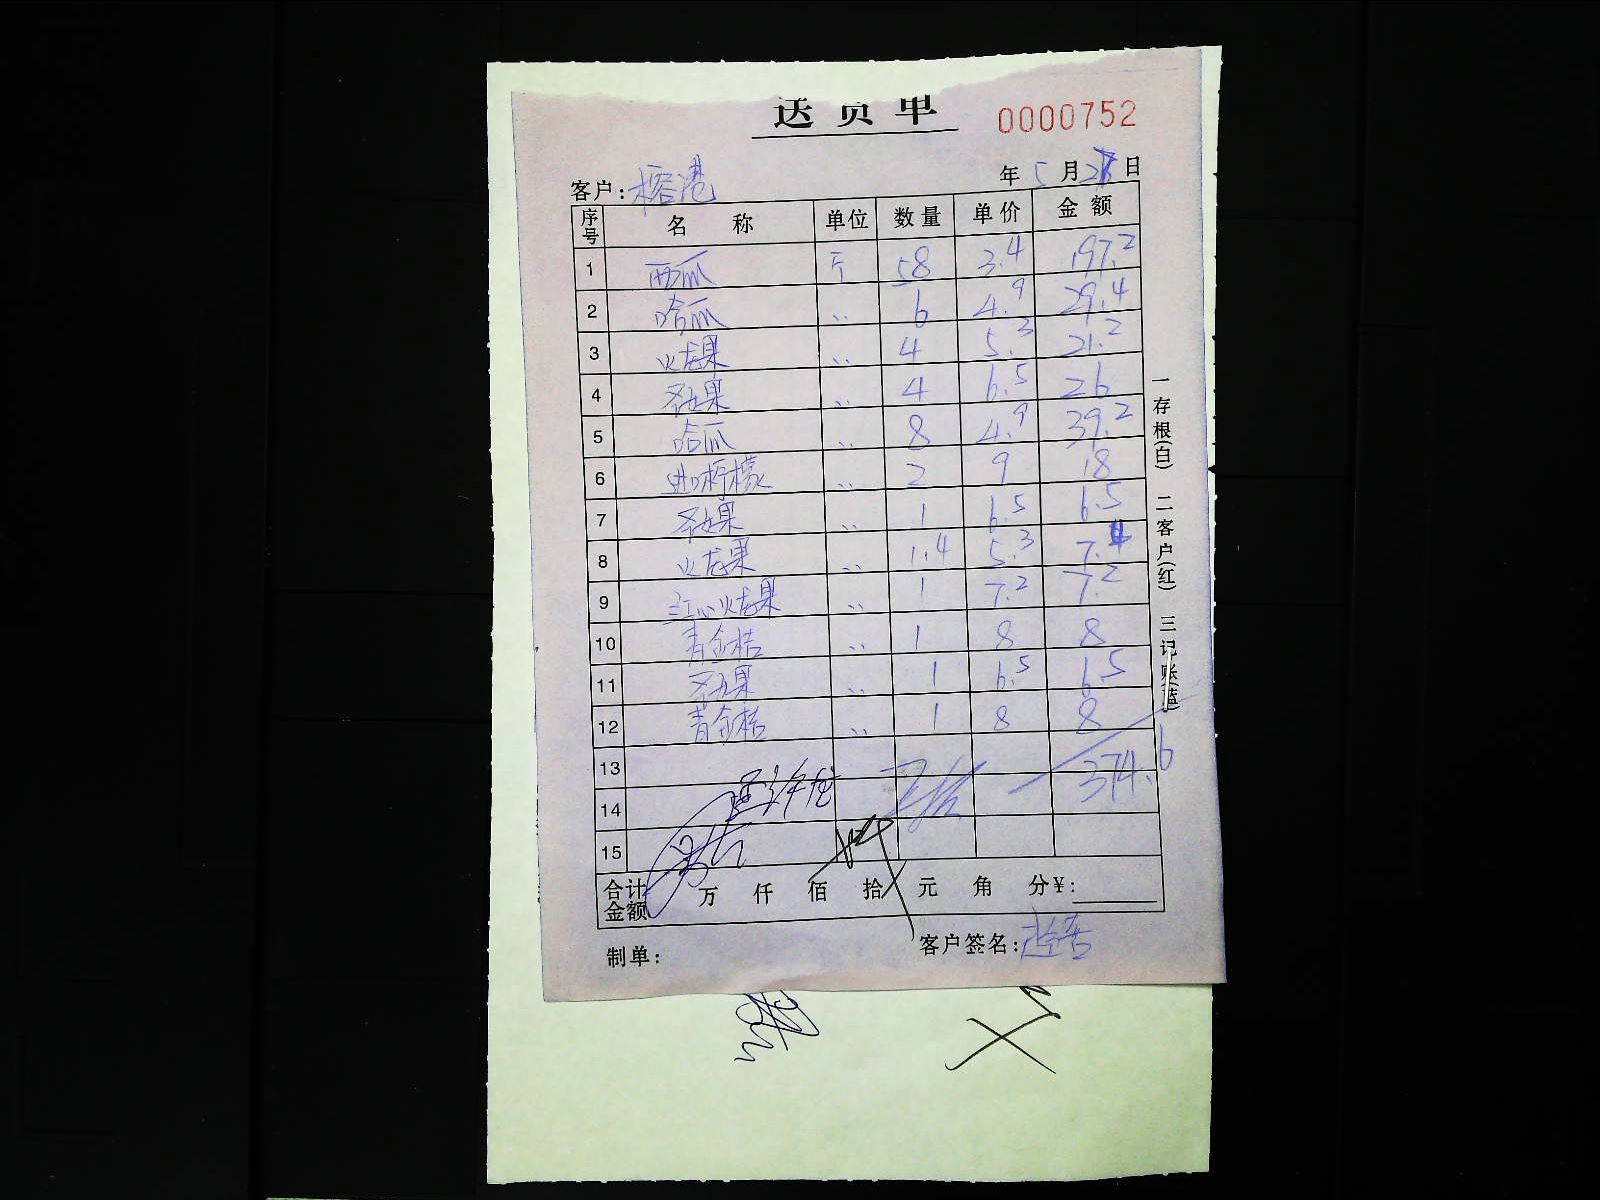 送货单 0000752
客户: 榕港 年 5 月 日
序号 名称 单位 数量 单价 金额
1 西瓜 斤 58 3.4 197.2
2 哈瓜 〃 6 4.9 29.4
3 火龙果 〃 4 5.3 21.2
4 圣女果 〃 4 6.5 26
5 哈瓜 〃 8 4.9 39.2
6 进口柠檬 〃 2 9 18
7 圣女果 〃 1 6.5 6.5
8 火龙果 〃 1.4 5.3 7.4
9 红心火龙果 〃 1 7.2 7.2
10 青金桔 〃 1 8 8
11 圣女果 〃 1 6.5 6.5
12 青金桔 〃 1 8 8
13
14 374.6
15
合计金额 万 仟 佰 拾 元 角 分¥:
制单: 客户签名:
一存根(白) 二客户(红) 三记账(蓝)